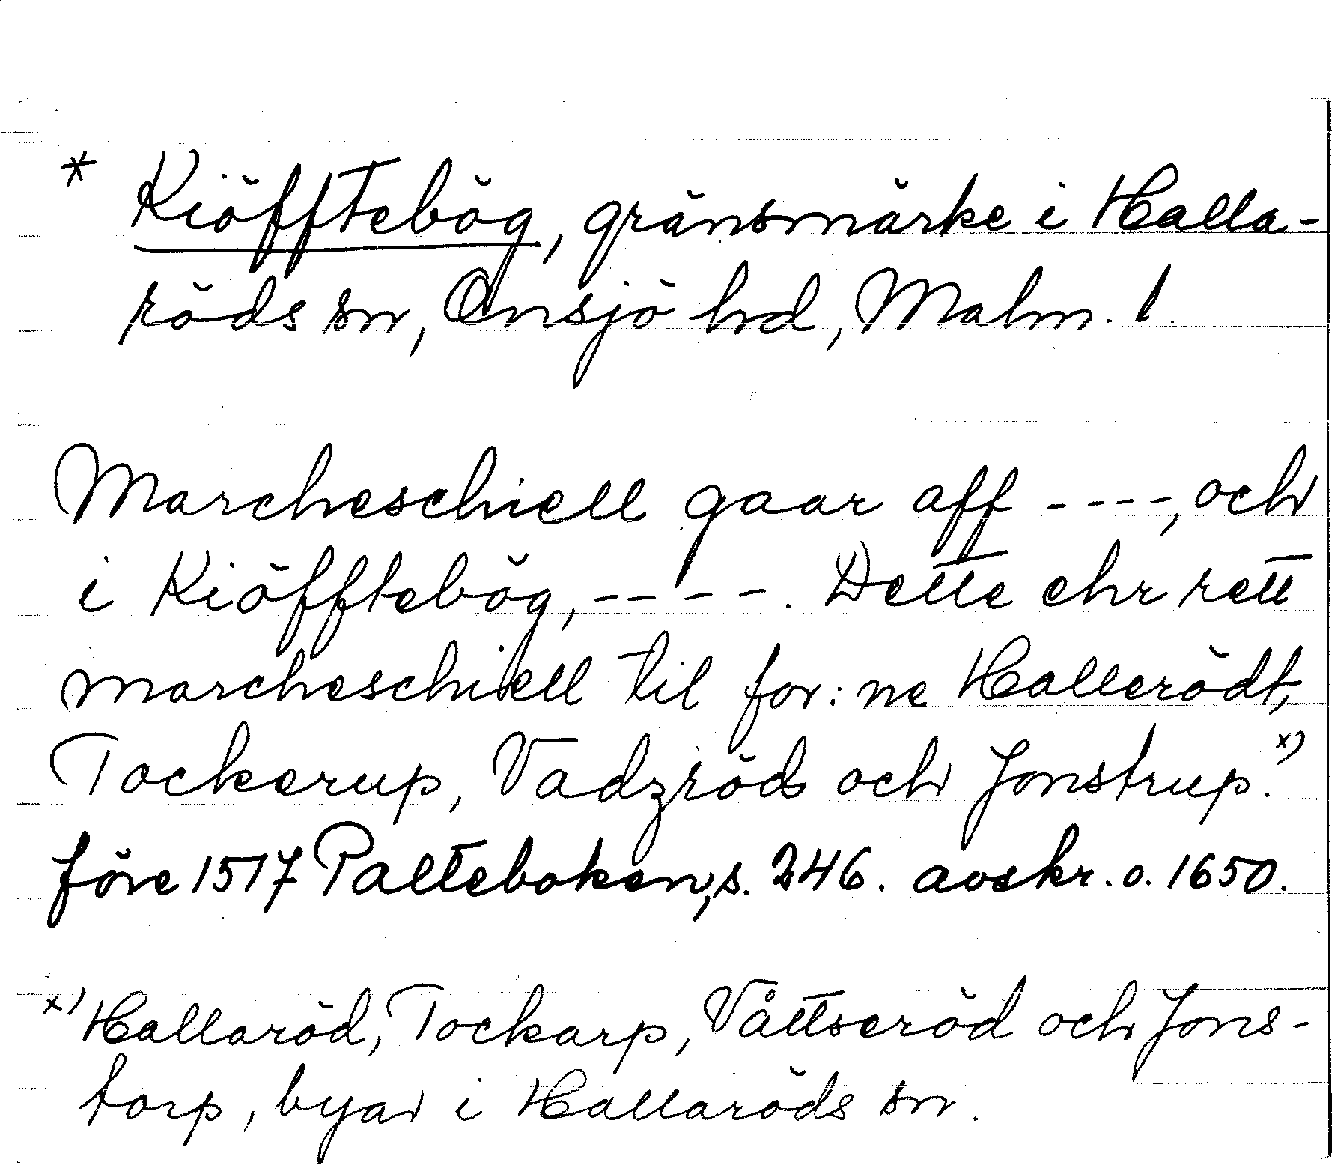 * Kiöfftebög, gränsmärke i Halla-
röds sn, Onsjö hd, Malm. l.
Marcheschiell gaar aff ----, och
i Kiöfftebög, ----. Dette ehr rett
marcheschiell til for: ne Hallerödt,
Tockerup, Vadzröd och Jonstrup. x)
före 1517 Palteboken, s. 246. avskr. o. 1650.
x) Hallaröd, Tockarp, Våttseröd och Jons-
torp, byar i Hallaröds sn.